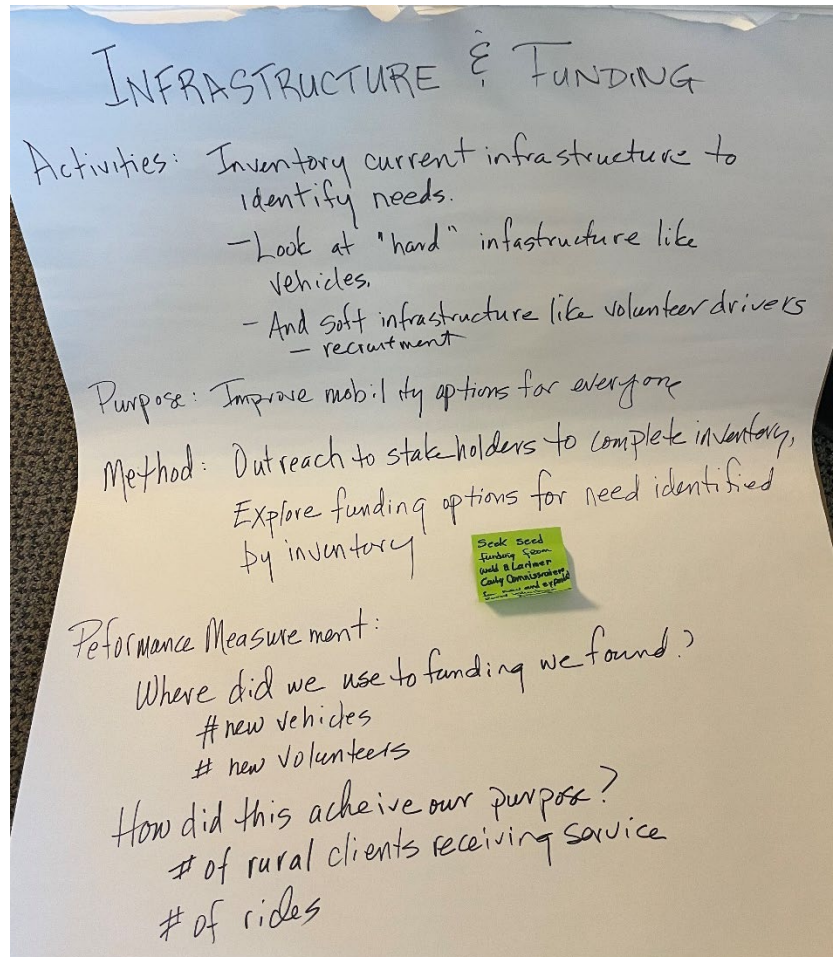 INFRASTRUCTURE & FUNDING
Activities: Inventory current infrastructure to
identify needs.
- Look at "hard" infastructure like
vehicles.
- And soft infrastructure like volunteer drivers
- recruitment
Purpose: Improve mobility options for everyone
Method: Outreach to stakeholders to complete inventory,
Explore funding options for need identified
by inventory
Seek seed
funding from
Weld & Larimer
County Commissioners
and expand
Peformance Measurement:
Where did we use to funding we found?
# new vehicles
# new volunteers
How did this acheive our purpose?
# of rural clients receiving service
# of rides